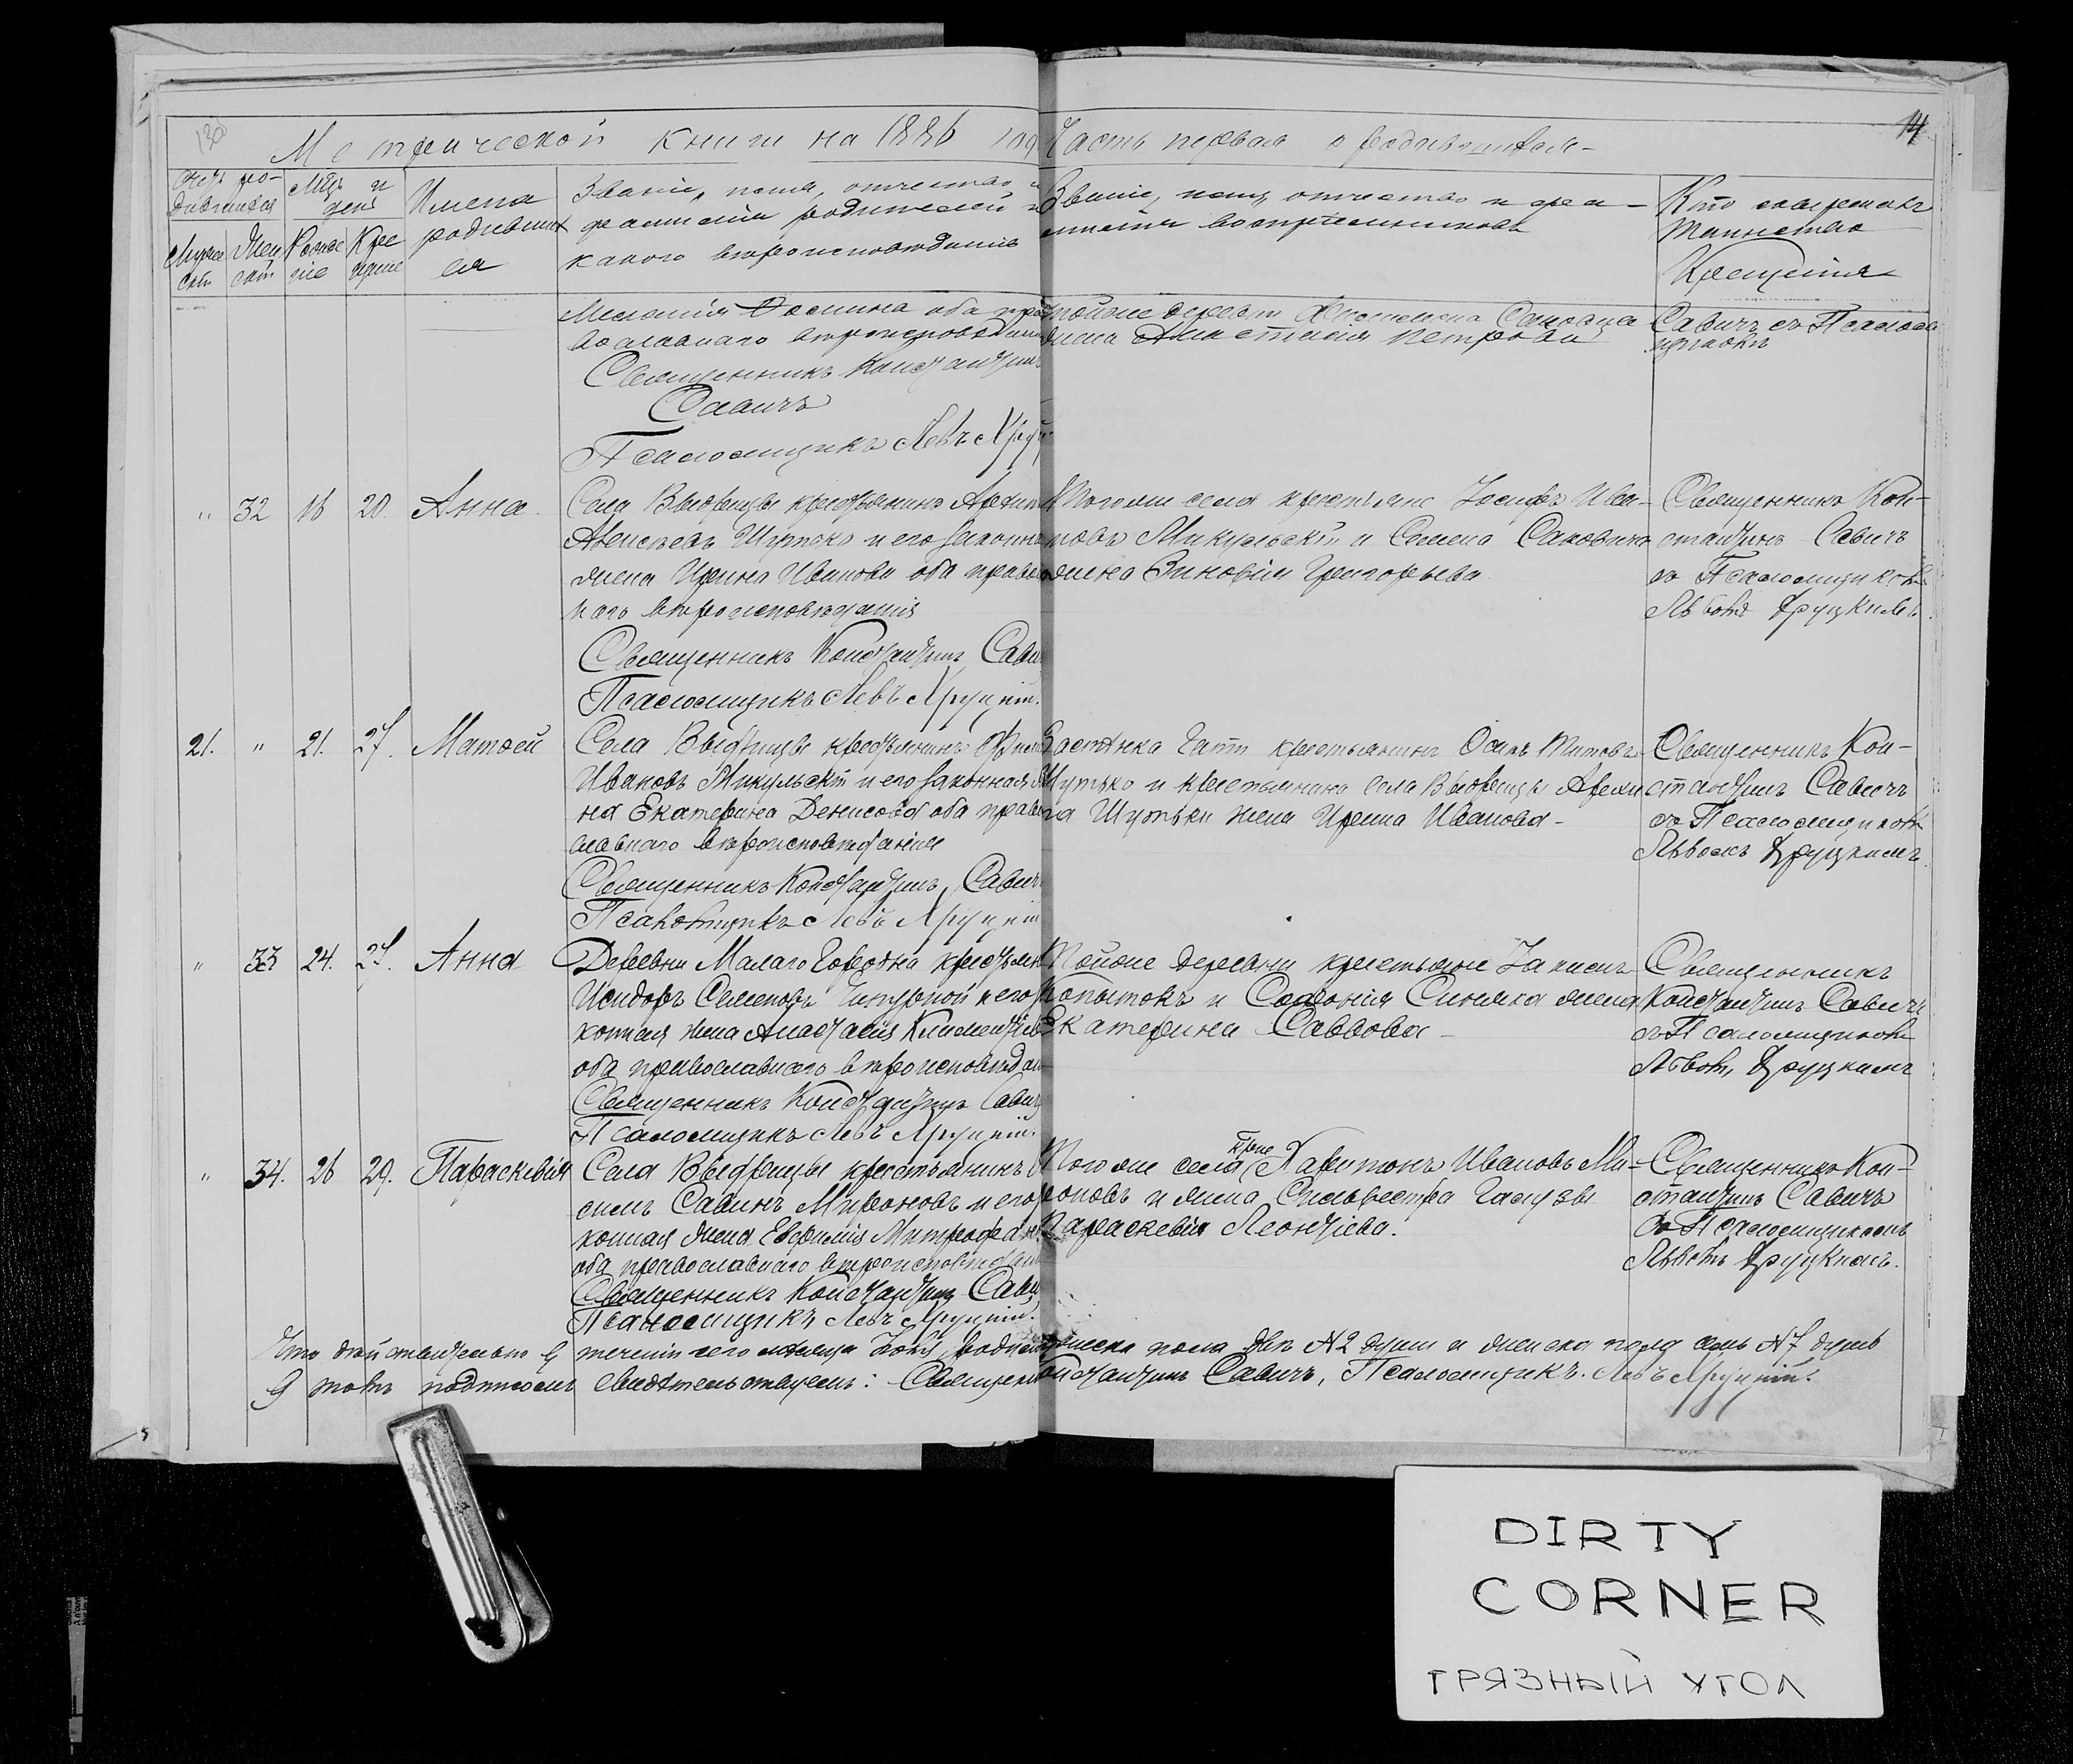 Метрической книги на 1886 год Часть первая о родившихся
14
130
Счетъ ро-
дившихся
Мѣсяцъ и
день
Имена
родивших
ся
Званіе, имя, отчество и
фамилія родителей и
какого вѣроисповѣданія
Званіе, имя, отчество и фа-
милія воспріемниковъ
Кто совершалъ
таинство
Крещенія
Мужес
Жен
Рожде
ніе
Кре
щеніе
Меланія Фомина оба пра
вославнаго вѣроисповѣданія
Священникъ Константинъ
Савичъ
Псаломщикъ Левъ
тойже деревни Саковца
жена Анастасія Петрова
Савичъ съ Псалом
щикомъ
" 32 16 20. Анна.
Села Выдрицы крестьянинъ
Алексѣевъ Шутько и его законна
жена Ирина Иванова оба правосл
наго вѣроисповѣданія
Священникъ Константинъ Сави
Псаломщикъ Левъ Друцкій.
Тогоже села крестьяне Іосифъ Ива-
новъ Микульскій и Семена Саковича
жена Зиновія Григорьева
Священникъ Кон-
стантинъ Савичъ
съ Псаломщикомъ
Львомъ Друцкимъ.
21. " 21. 27. Матѳей
Села Выдрицы крестьянинъ
Ивановъ Микульскій и его законная
на Екатерина Денисова оба право
славнаго вѣроисповѣданія
Священникъ Константинъ Савичъ
Псаломщикъ Левъ Друцкій
Застѣнка Гатти крестьянинъ Осипъ Титовъ
Шутько и крестьянина села Выдрицы
Шутьки жена Ирина Иванова-
Священникъ Кон-
стантинъ Савичъ
съ Псаломщикомъ
Львомъ Друцкимъ
" 33 24. 27. Анна
Деревни Малаго Городна крестьян
Исидоръ Семеновъ и его
конная жена Анастасія Климентьев
оба православнаго вѣроисповѣдан
Священникъ Константинъ Савич
Псаломщикъ Левъ Друцкій.
Тойже деревни крестьяне
Копытокъ и Софонія Синяка жена
Екатерина Саввова-
Священникъ
Константинъ Савичъ
съ Псаломщикомъ
Львомъ Друцкимъ
" 34. 26 29. Параскевія
Села Выдрицы крестьянинъ
симъ Савинъ Мироновъ и его
конная жена Евфимія Митрофан
оба православнаго вѣроисповѣдан
Священникъ Константинъ Сави
Псаломщикъ Левъ Друцкій.
Тогоже села Харитонъ Ивановъ Ми-
роновъ и жена Сильвестра
Параскевія Леонтіева.
Священникъ Кон-
стантинъ Савичъ
съ Псаломщикомъ
Львомъ Друцкимъ.
Что дѣйствительно въ теченіи сего мѣсяца мужеска пола двѣ №2 души и женска пола семь №7 душъ
въ томъ подписомъ свидѣтельствуемъ: Священ Константинъ Савичъ, Псаломщикъ Левъ Друцкій.
DIRTY
CORNER
ГРЯЗНЫЙ УГОЛ